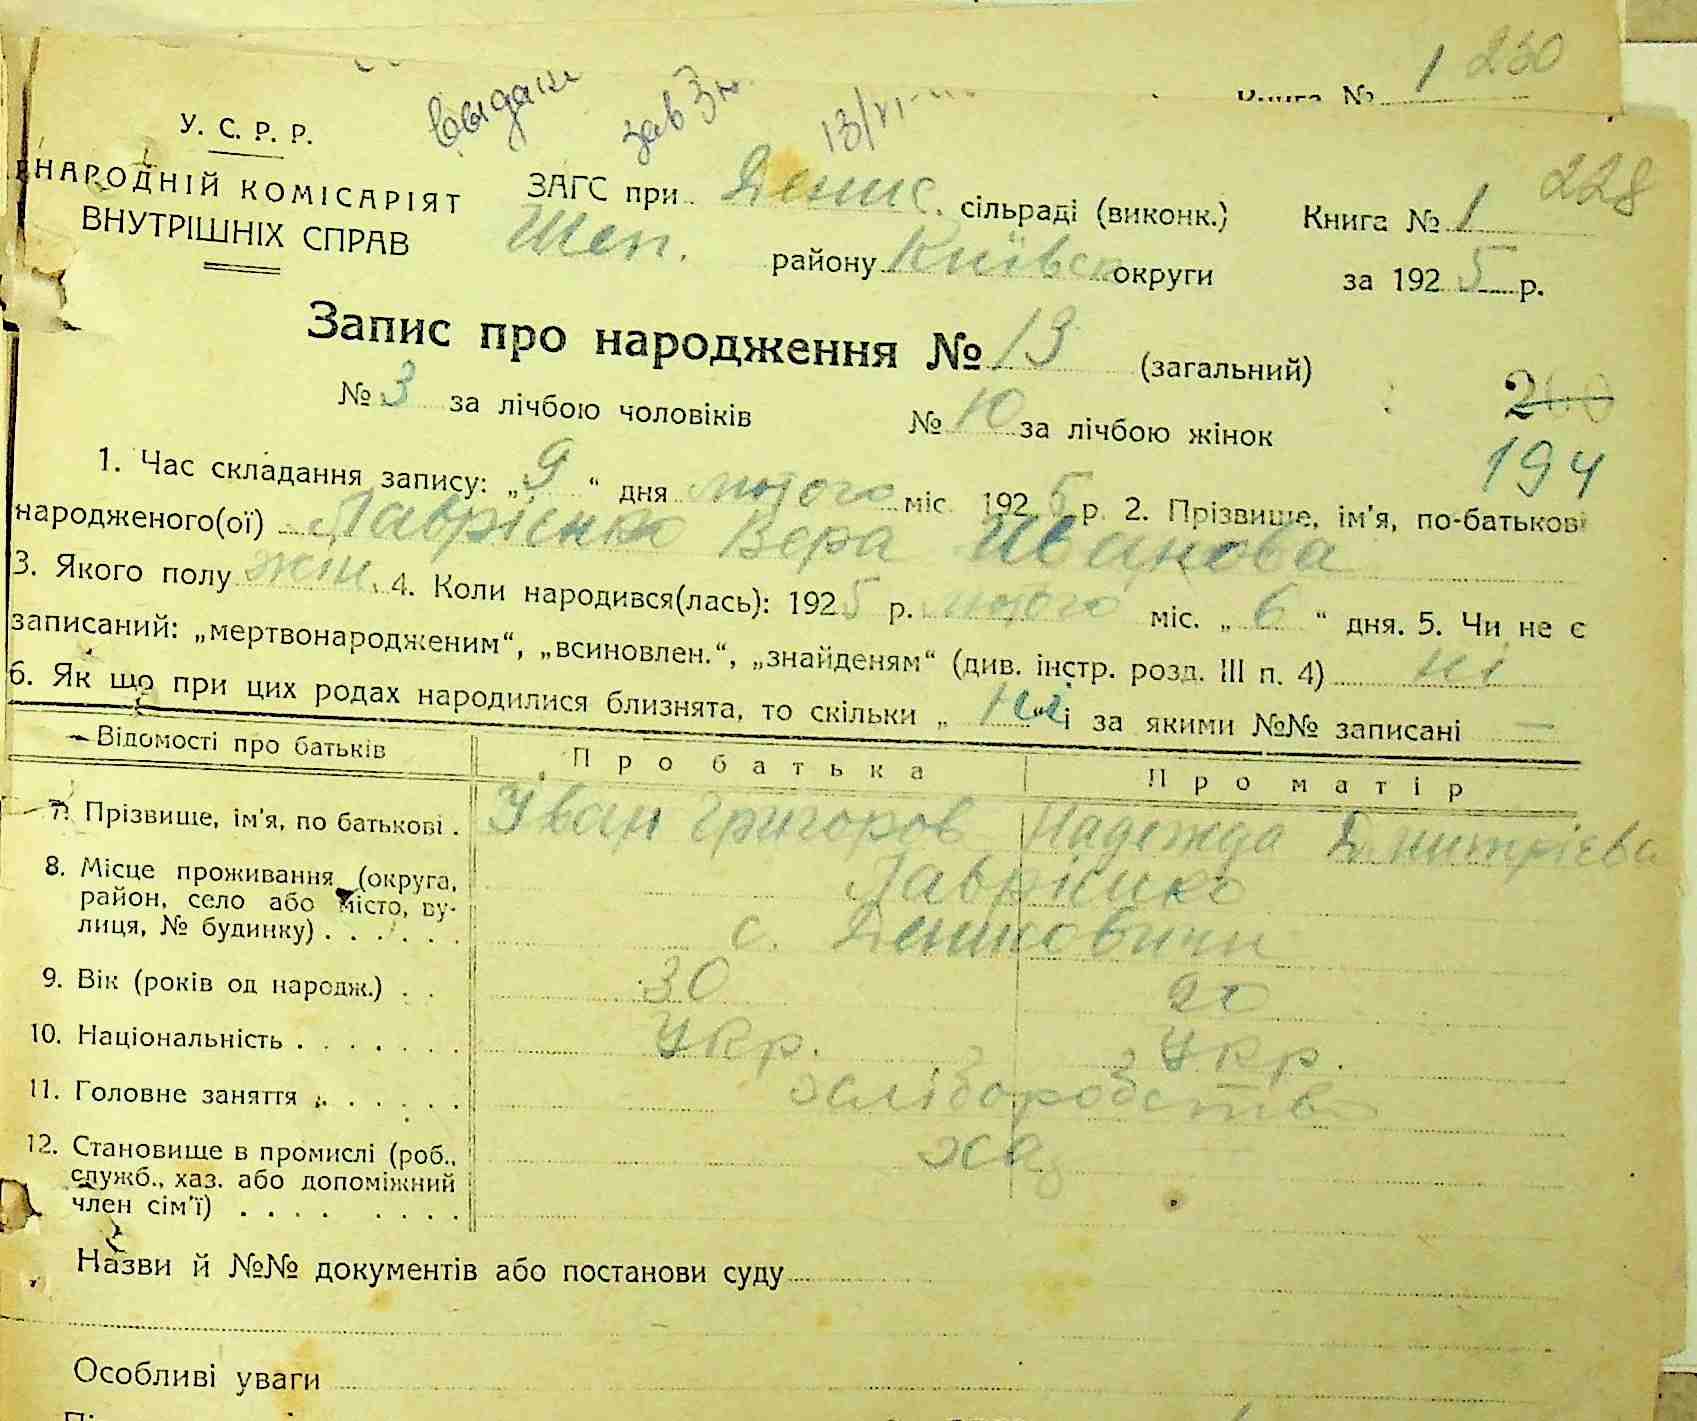 Книга № 1 230
видани зав
13/VI
У. С. Р. Р.
НАРОДНІЙ КОМІСАРІЯТ
ВНУТРІШНІХ СПРАВ
ЗАГС при Денис. сільраді (виконк.) Книга № 1 228
Шеп. району Київск округи за 1925 р.
Запис про народження № 13 (загальний)
№ 3 за лічбою чоловіків № 10 за лічбою жінок
194
1. Час складання запису: „9“ дня лютого міс. 1925 р. 2. Прізвище, ім'я, по-батькові
народженого(ої) Лаврієнко Вера Иванова
3. Якого полу жін. 4. Коли народився(лась): 1925 р. лютого міс. „6“ дня. 5. Чи не є
записаний: „мертвонародженим“, „всиновлен.“, „знайденям“ (див. інстр. розд. III п. 4) ні
6. Як що при цих родах народилися близнята, то скільки „ ні “ і за якими №№ записані —
Відомості про батьків Про батька Про матір
7. Прізвище, ім'я, по батькові . Іван Григоров Надежда Дмитрієва
8. Місце проживання (округа, Лаврієнко
район, село або місто, ву-
лиця, № будинку) . . . . . . с. Денисовичи
9. Вік (років од народж.) . . 30 20
10. Національність . . . . . . . Укр. Укр.
11. Головне заняття . . . . . . . хліборобство
12. Становище в промислі (роб., хаз
служб., хаз. або допоміжний
член сім'ї) . . . . . . . .
Назви й №№ документів або постанови суду
Особливі уваги